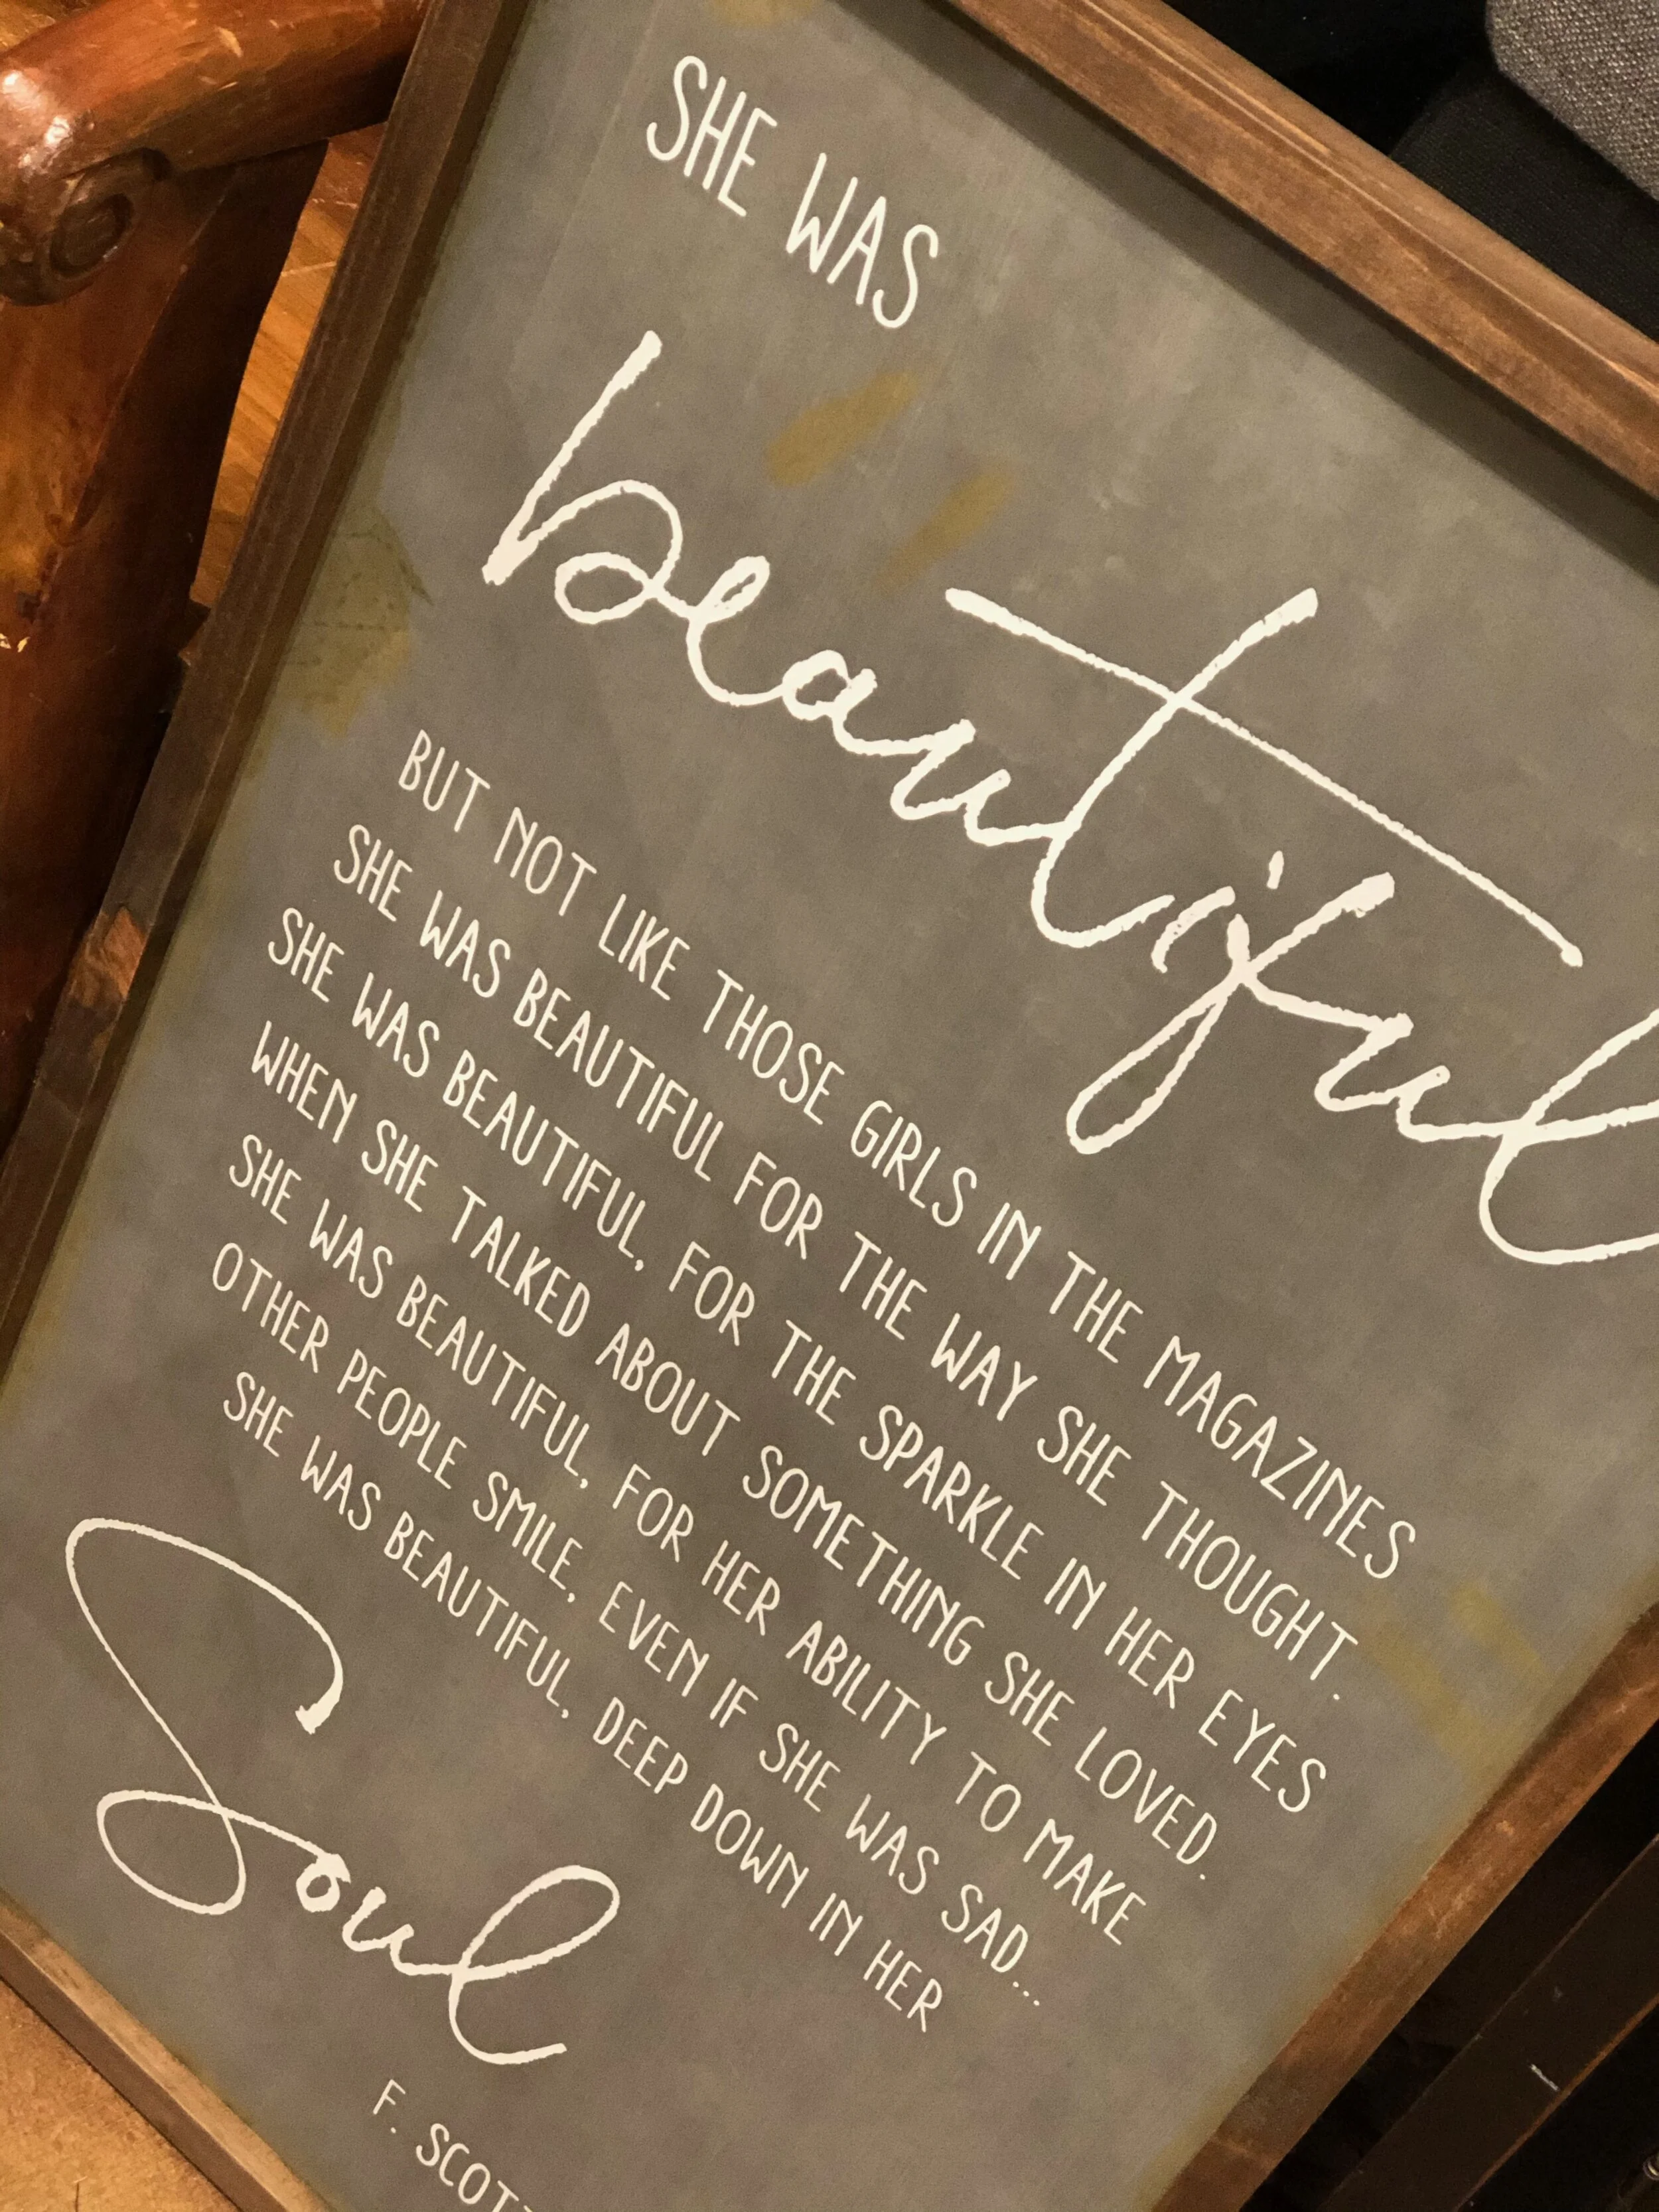 SHE WAS
beautiful
BUT NOT LIKE THOSE GIRLS IN THE MAGAZINES
SHE WAS BEAUTIFUL FOR THE WAY SHE THOUGHT.
SHE WAS BEAUTIFUL, FOR THE SPARKLE IN HER EYES
WHEN SHE TALKED ABOUT SOMETHING SHE LOVED.
SHE WAS BEAUTIFUL, FOR HER ABILITY TO MAKE
OTHER PEOPLE SMILE, EVEN IF SHE WAS SAD...
SHE WAS BEAUTIFUL, DEEP DOWN IN HER
Soul
F. SCOT